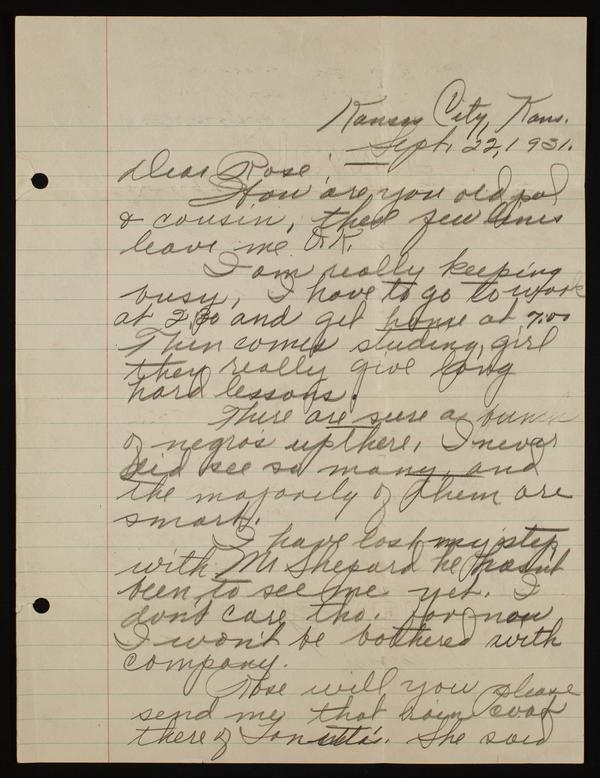 Kansas City, Kans.
Sept. 22, 1931.
Dear Rose,
How are you old pal
& cousin, these few lines
leave me O.K.
I am really keeping
busy, I have to go to work
at 2:30 and get home at 7:00
Then comes studing, girl
they really give long
hard lessons.
There are sure a bunch
of negros up there, I never
did see so many, and
the majority of them are
smart.
I have lost my step
with Mr Shepard he hasn't
been to see me yet. I
don't care tho. for now
I won't be bothered with
company.
Rose will you please
send me that rain coat
there of . She said